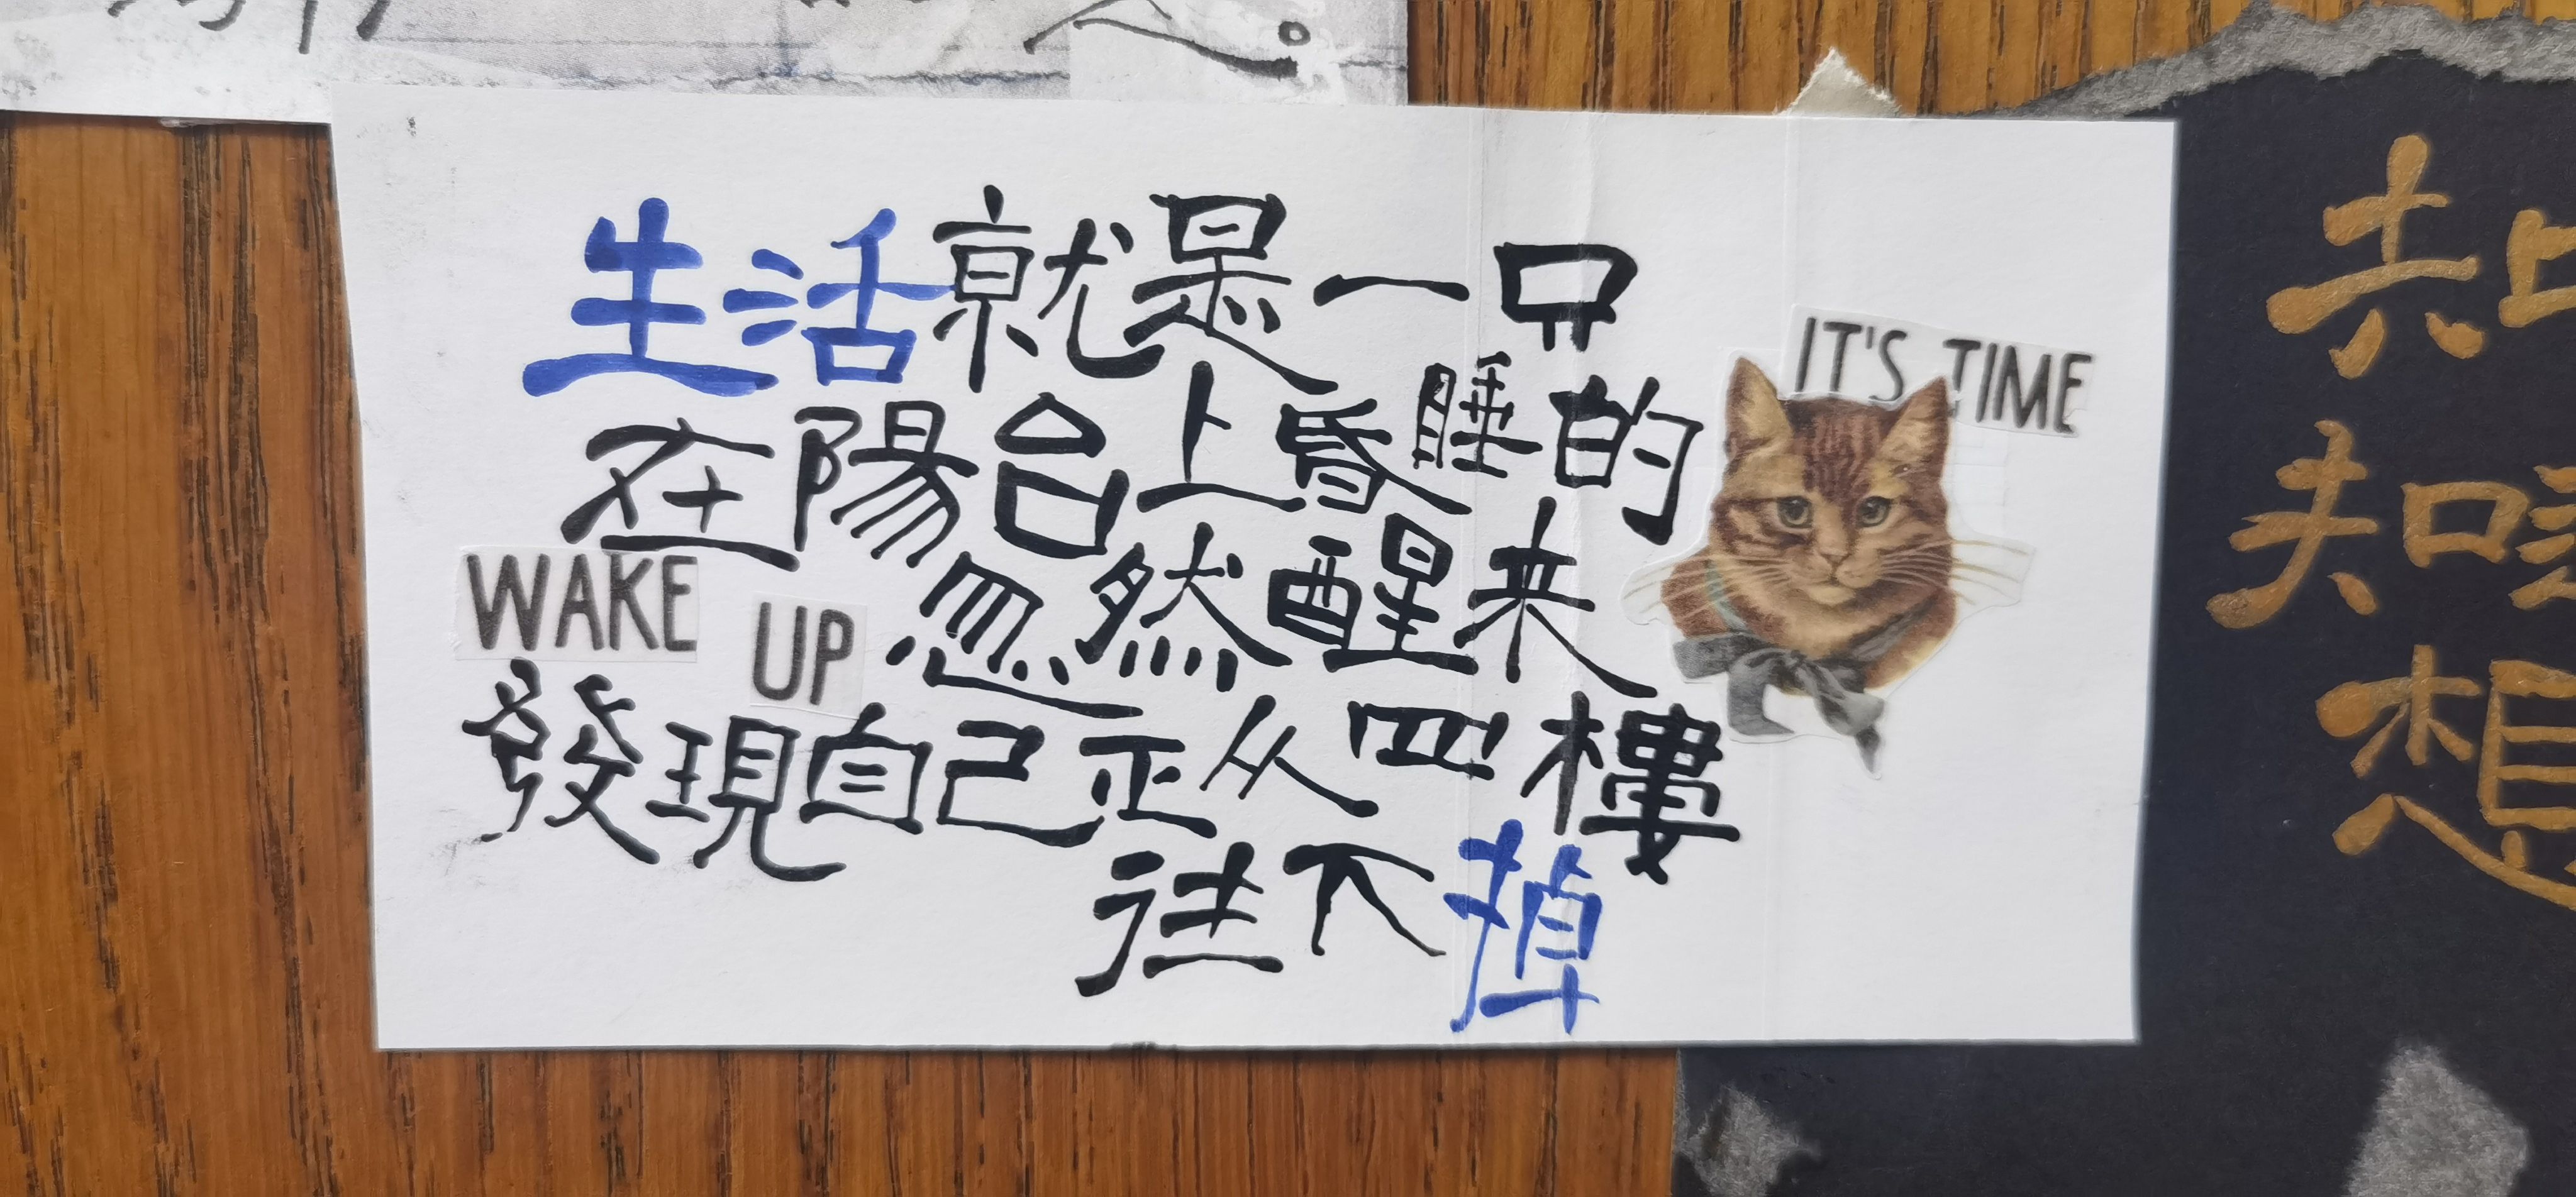 生活就是一只
IT'S TIME
在陽台上昏睡的
WAKE UP
忽然醒来
發現自己正从四樓
往下掉